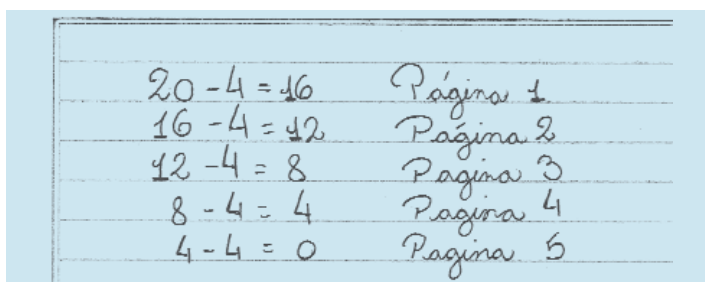 20 - 4 = 16 Página 1
16 - 4 = 12 Página 2
12 - 4 = 8 Pagina 3
8 - 4 = 4 Pagina 4
4 - 4 = 0 Pagina 5